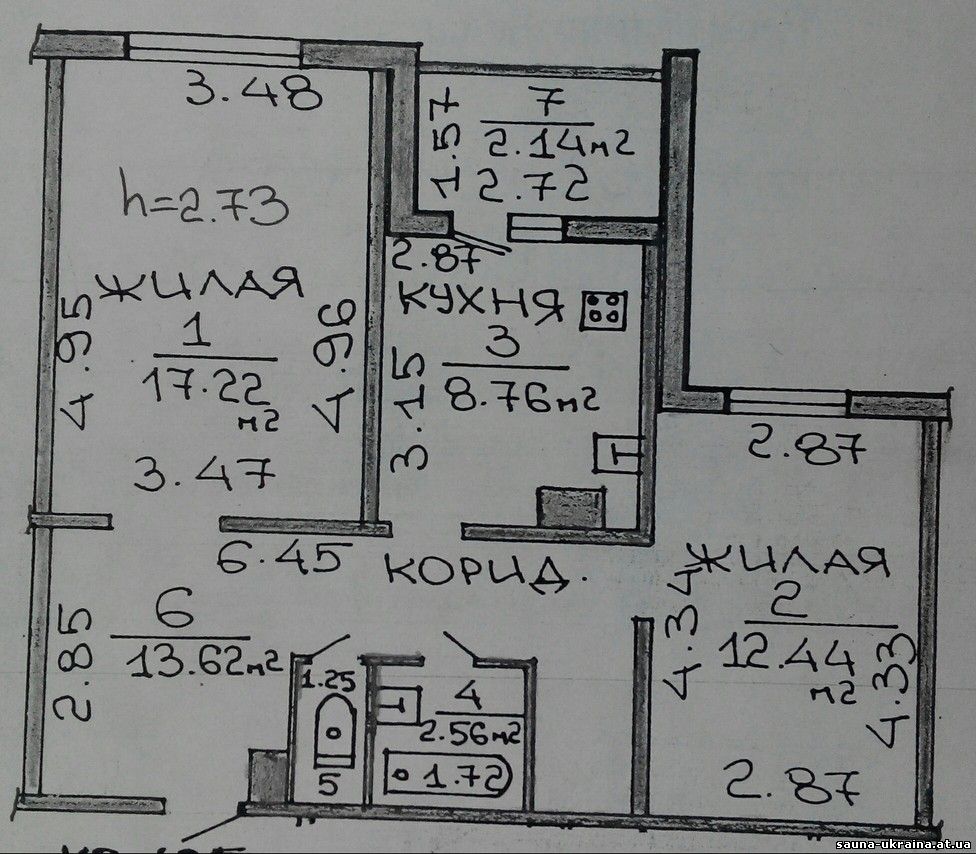 3.48
h=2.73
ЖИЛАЯ
1
17.22
м2
4.95
4.96
3.47
7
2.14м2
2.72
1.57
2.87
КУХНЯ
3
8.76м2
3.15
2.87
6.45
КОРИД.
ЖИЛАЯ
2
12.44
м2
4.34
4.33
2.87
6
13.62м2
2.85
1.25
5
4
2.56м2
1.72
sauna-ukraina.at.ua